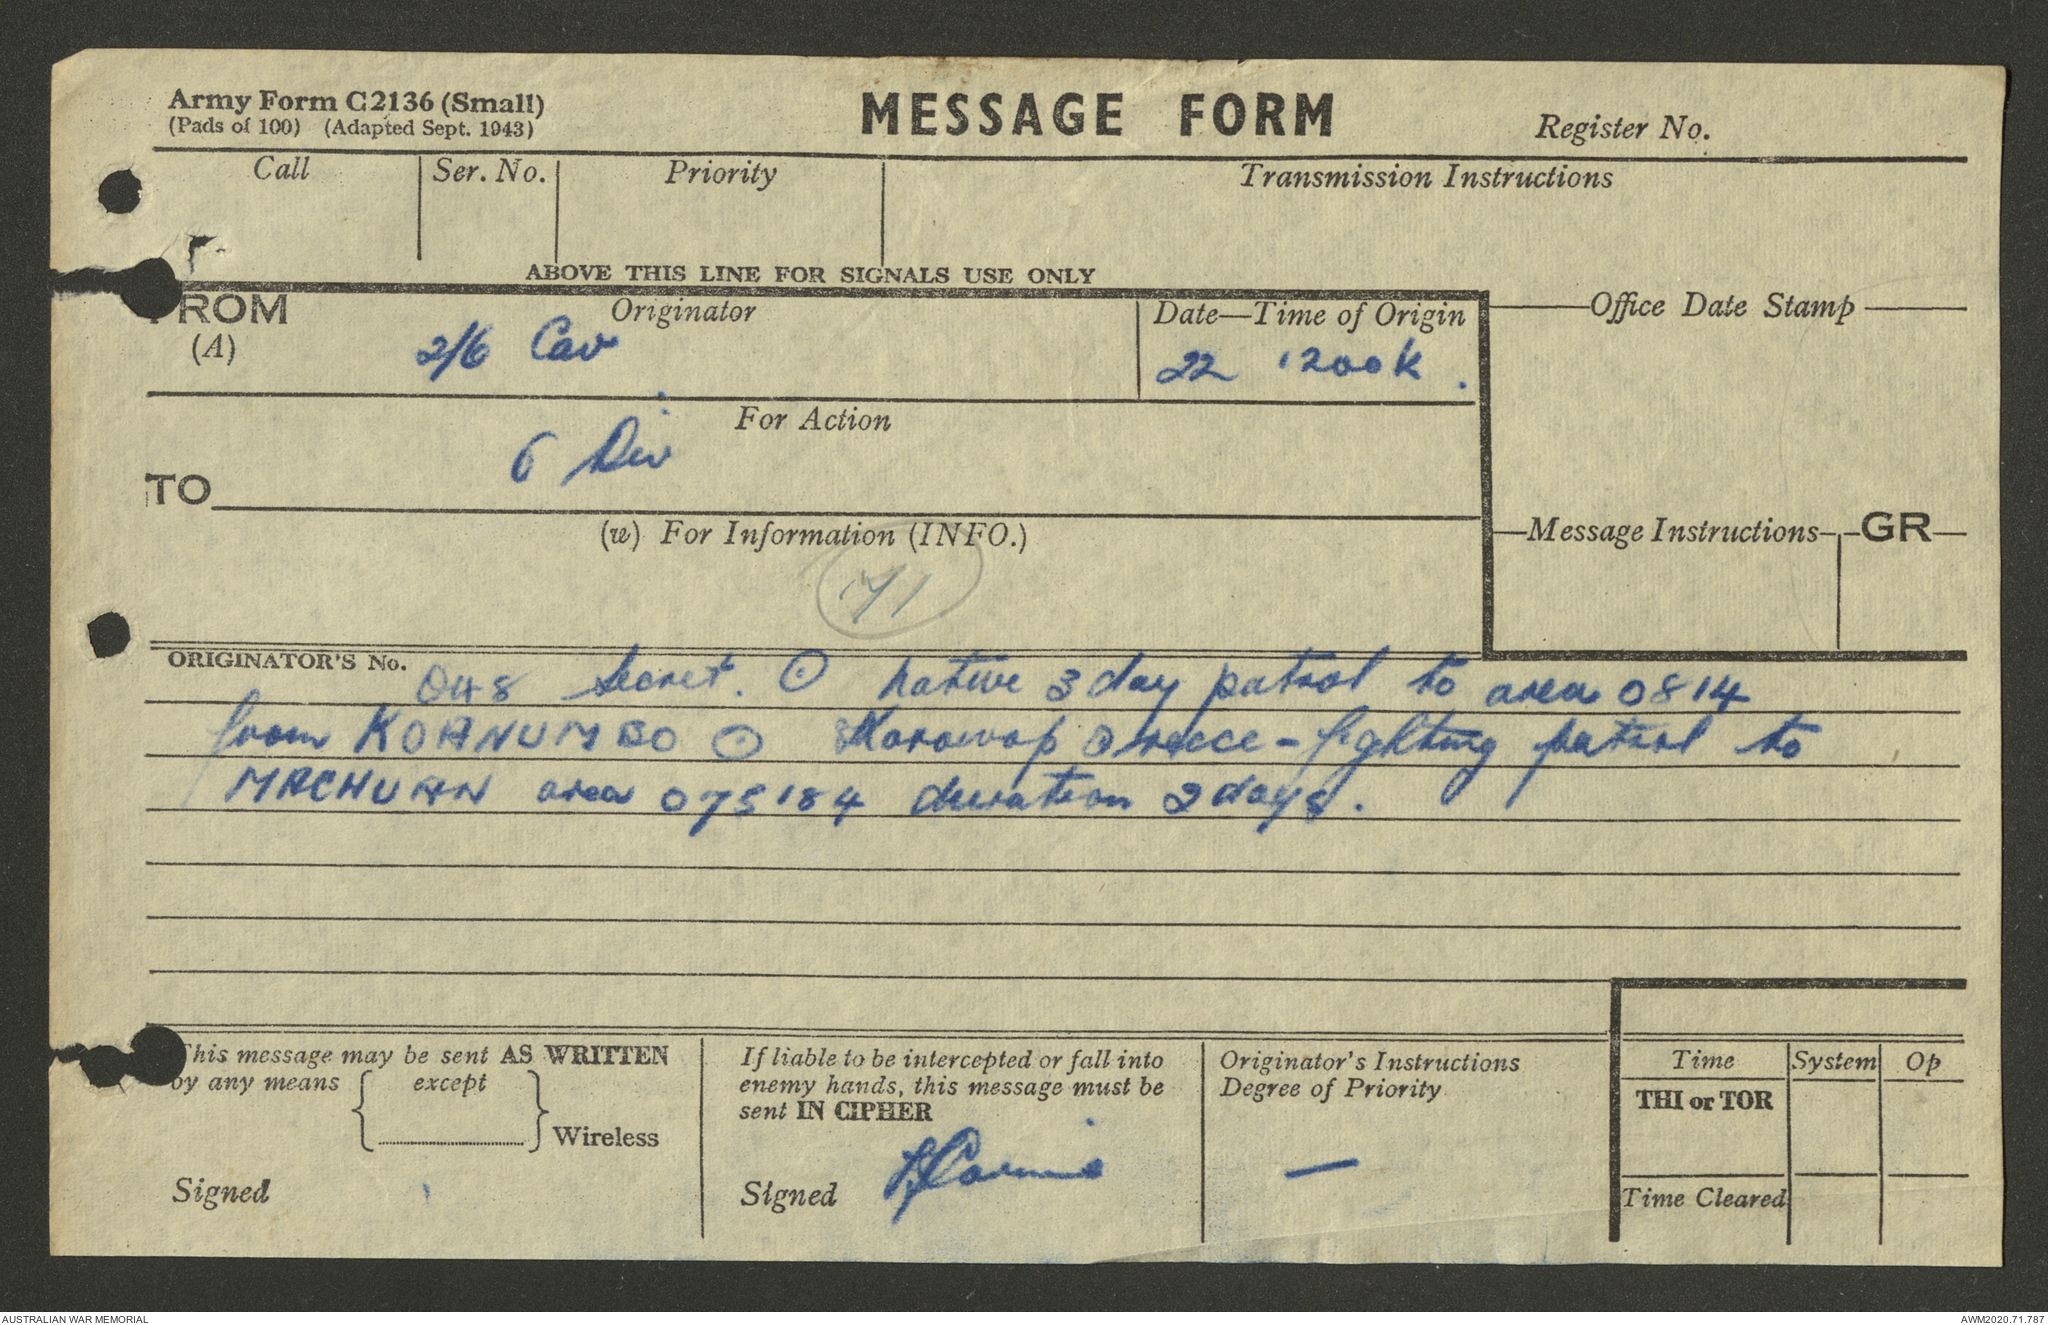 Army Form C2136 (Small)
(Pads of 100) (Adapted Sept. 1943)
MESSAGE FORM
Register No.
Call
Ser. No.
Priority
Transmission Instructions
ABOVE THIS LINE FOR SIGNALS USE ONLY
FROM
(A)
Originator
2/6 Cav
Date—Time of Origin
22 1200K.
Office Date Stamp
For Action
6 Div
TO
(w) For Information (INFO.)
71
Message Instructions
GR
ORIGINATOR'S No.
048 Secret. ⊙ native 3 day patrol to area 0814
from KOANUMBO ⊙ Karawop ⊙ recce - fighting patrol to
MACHUAN area 075184 duration 2 days.
This message may be sent AS WRITTEN
by any means except
Wireless
Signed
If liable to be intercepted or fall into
enemy hands, this message must be
sent IN CIPHER
Signed
Originator's Instructions
Degree of Priority
—
Time
System
Op
THI or TOR
Time Cleared
AUSTRALIAN WAR MEMORIAL
AWM2020.71.787